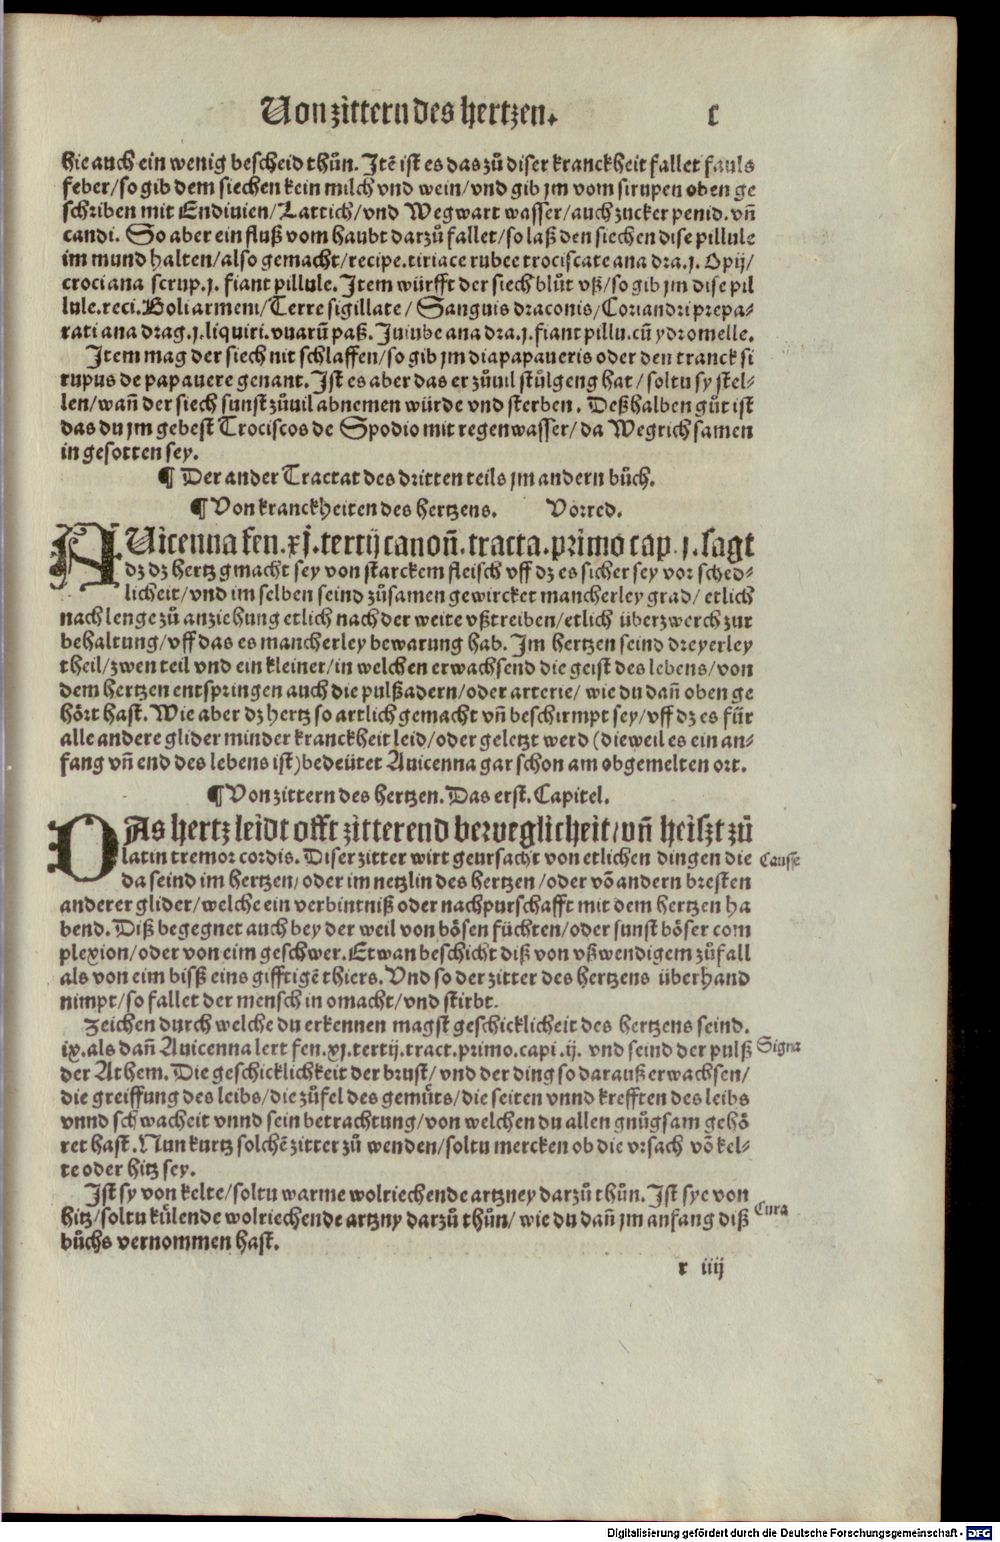 Von zittern des hertzen. C
hie auch ein wenig bescheid thůn. Itē ist es das zů diser kranckheit fallet fauls
feber/so gib dem siechen kein milch vnd wein/vnd gib jm vom sirupen oben ge
schriben mit Endiuien/Lattich/vnd Wegwart wasser/auch zucker penid. vñ
candi. So aber ein fluß vom haubt darzů fallet/so laß den siechen dise pillule
im mund halten/also gemacht/recipe. tiriace rubee trociscate ana dra. j. Opij/
croci ana scrup. j. fiant pillule. Item würfft der siech blůt vß/so gib jm dise pil
lule. reci. Boli armeni/Terre sigillate/Sanguis draconis/Coriandri prepa-
rati ana drag. j. liquiri. vuarū paß. Juiube ana dra. j. fiant pillu. cū ydromelle.
Item mag der siech nit schlaffen/so gib jm diapapaueris oder den tranck si
rupus de papauere genant. Ist es aber das er zůuil stůlgeng hat/soltu sy stel-
len/wañ der siech sunst zůuil abnemen würde vnd sterben. Deßhalben gůt ist
das du jm gebest Trociscos de Spodio mit regenwasser/da Wegrich samen
in gesotten sey.
¶ Der ander Tractat des dritten teils jm andern bůch.
¶ Von kranckheiten des hertzens. Vorred.
AUicenna fen. xj. tertij canoñ. tracta. primo cap. j. sagt
dz dz hertz gmacht sey von starckem fleisch vff dz es sicher sey vor sched-
licheit/vnd im selben seind zůsamen gewircket mancherley grad/etlich
nach lenge zů anziehung etlich nach der weite vßtreiben/etlich überzwerch zur
behaltung/vff das es mancherley bewarung hab. Im hertzen seind dreyerley
theil/zwen teil vnd ein kleiner/in welchen erwachsend die geist des lebens/von
dem hertzen entspringen auch die pulßadern/oder arterie/wie du dañ oben ge
hört hast. Wie aber dz hertz so artlich gemacht vñ beschirmpt sey/vff dz es für
alle andere glider minder kranckheit leid/oder geletzt werd (dieweil es ein an-
fang vñ end des lebens ist) bedeütet Auicenna gar schon am obgemelten ort.
¶ Von zittern des hertzen. Das erst. Capitel.
DAs hertz leidt offt zitterend beweglicheit/vñ heiszt zů
latin tremor cordis. Diser zitter wirt geursacht von etlichen dingen die
Causse
da seind im hertzen/oder im netzlin des hertzen/oder vō andern bresten
anderer glider/welche ein verbintniß oder nachpurschafft mit dem hertzen ha
bend. Diß begegnet auch bey der weil von bösen füchten/oder sunst böser com
plexion/oder von eim geschwer. Etwan beschicht diß von vßwendigem zůfall
als von eim bisß eins gifftigē thiers. Vnd so der zitter des hertzens überhand
nimpt/so fallet der mensch in omacht/vnd stirbt.
Zeichen durch welche du erkennen magst geschicklicheit des hertzens seind.
ix. als dañ Auicenna lert fen. xj. tertij. tract. primo. capi. ij. vnd seind der pulß
Signa
der Athem. Die geschicklichkeit der brust/vnd der ding so darauß erwachsen/
die greiffung des leibs/die zůfel des gemůts/die seiten vnnd krefften des leibs
vnnd schwacheit vnnd sein betrachtung/von welchen du allen gnůgsam gehö
ret hast. Nun kurtz solchē zitter zů wenden/soltu mercken ob die vrsach vō kel-
te oder hitz sey.
Ist sy von kelte/soltu warme wolriechende artzney darzů thůn. Ist sye von
hitz/soltu külende wolriechende artzny darzů thůn/wie du dañ jm anfang diß
Cura
bůchs vernommen hast.
r iiij
Digitalisierung gefördert durch die Deutsche Forschungsgemeinschaft - DFG